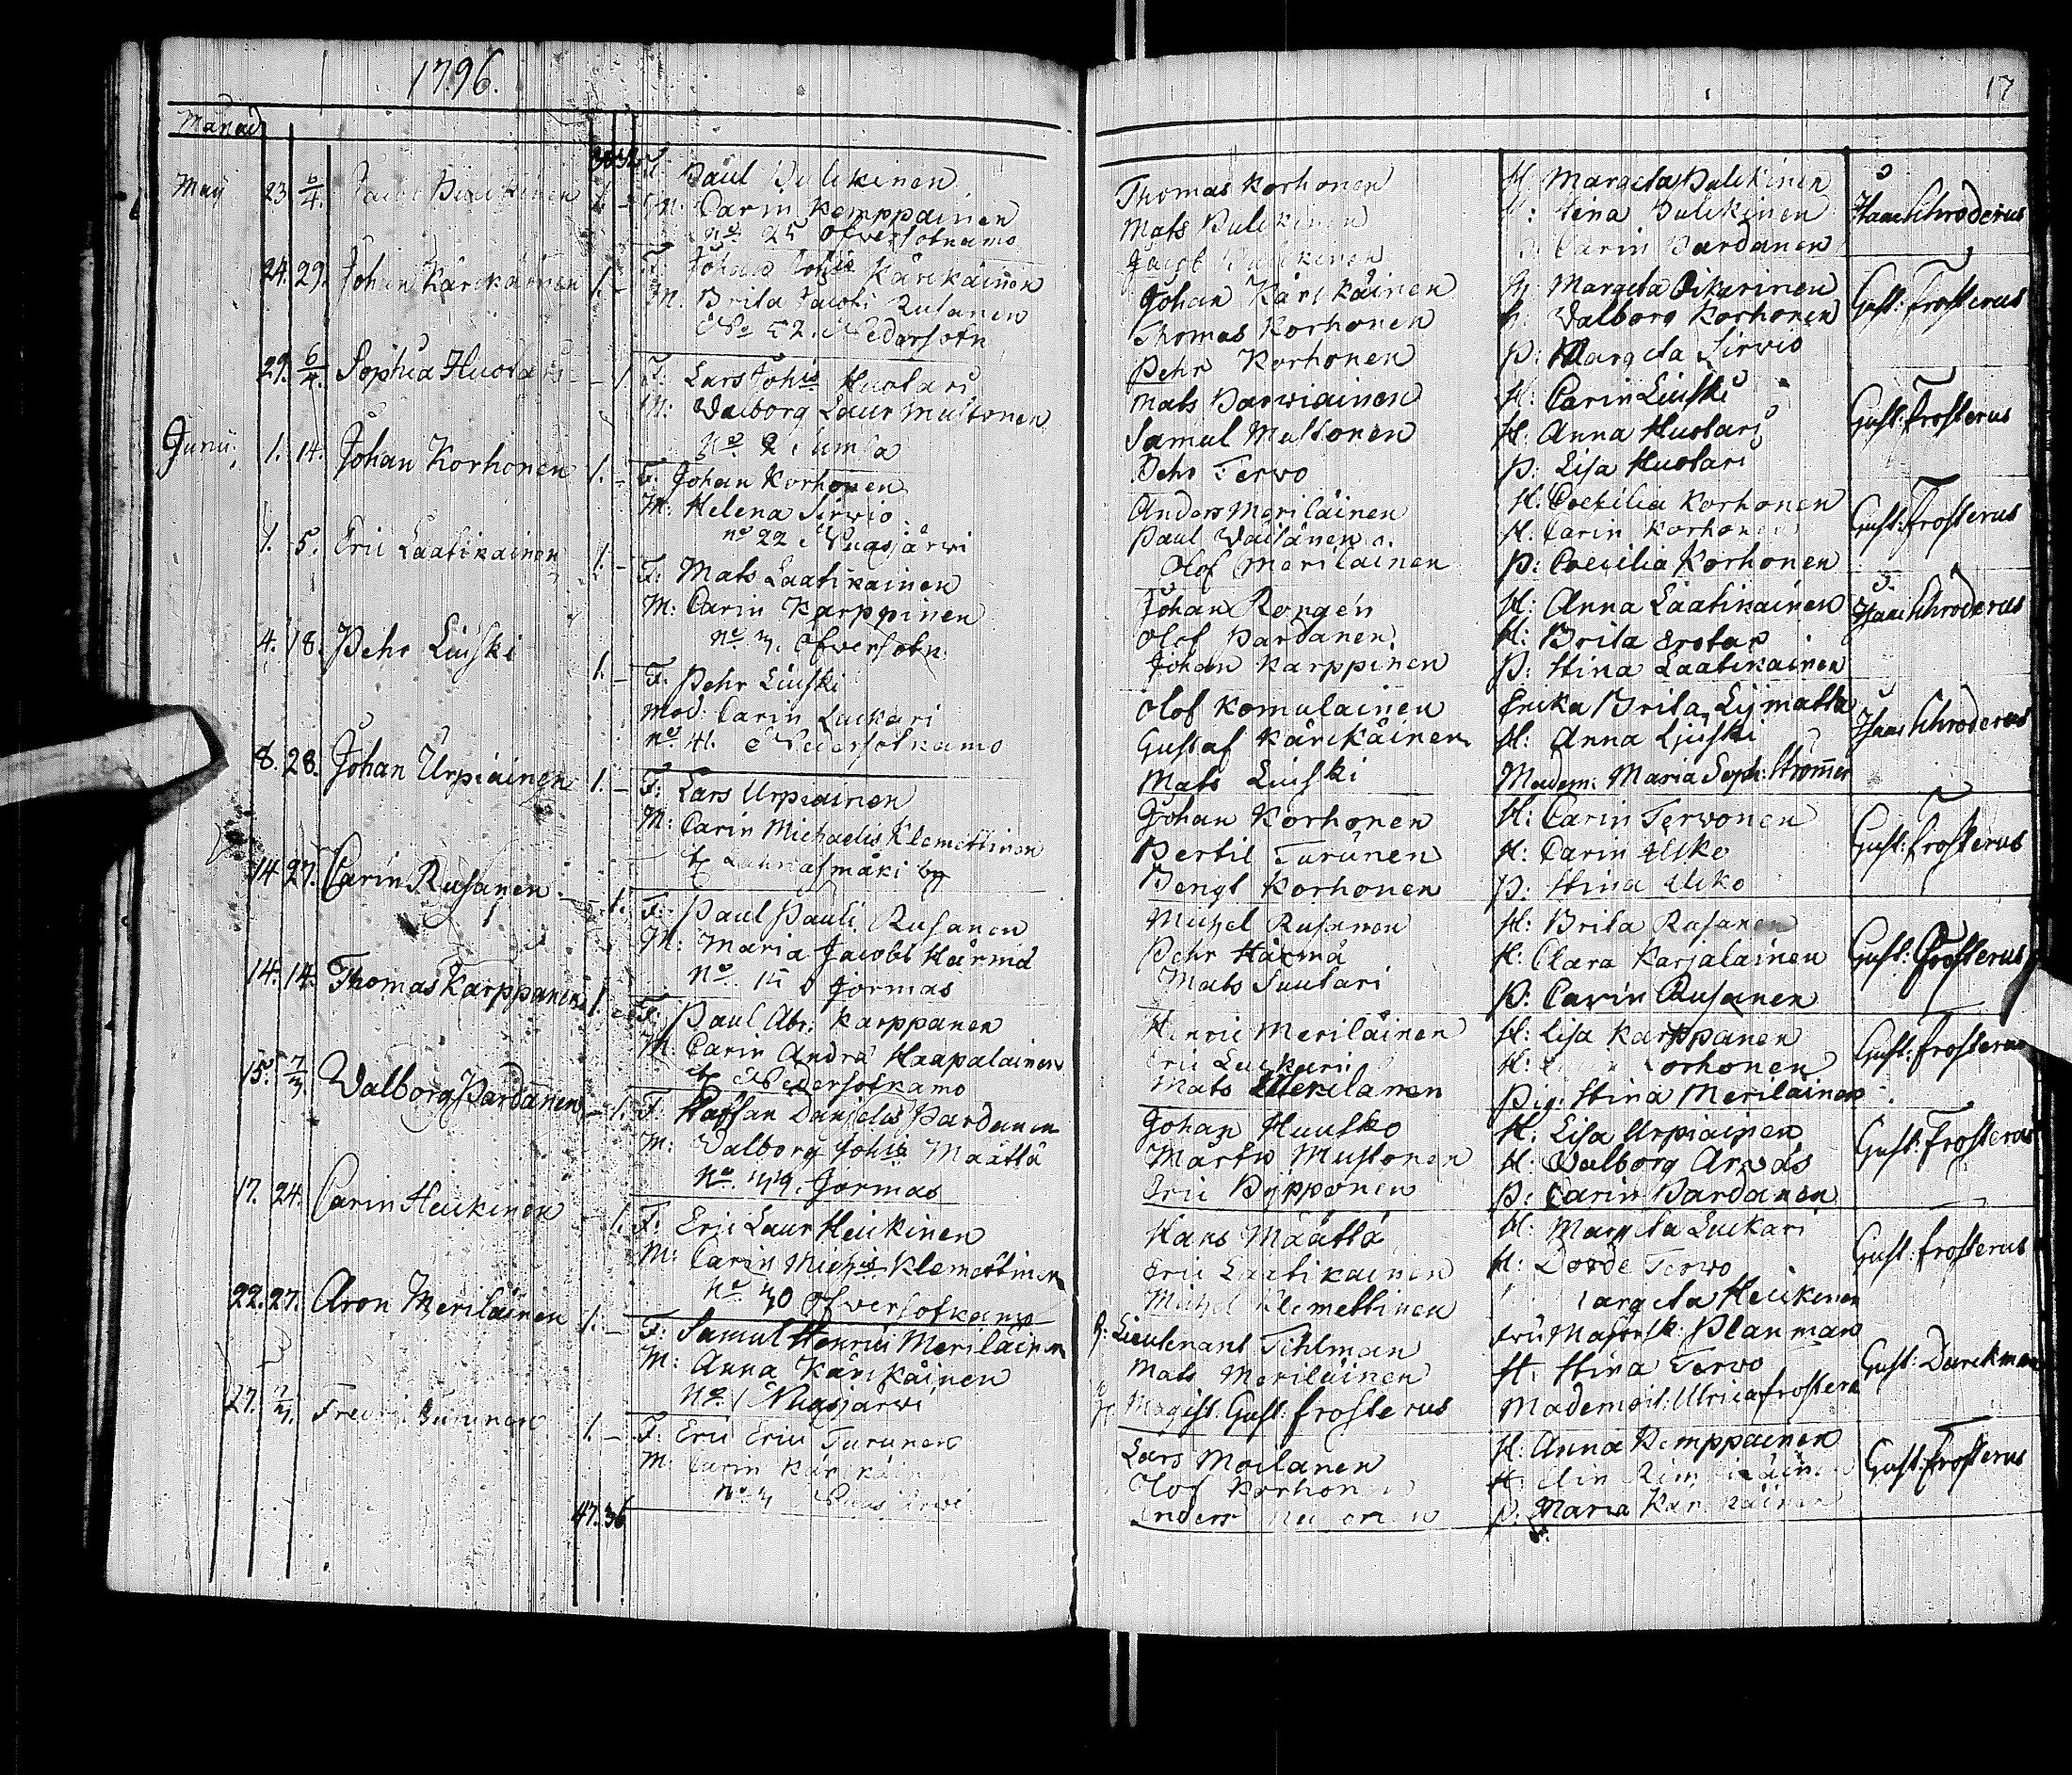 1796.
17
Månad
May 23 6/4. Paul Pulckinen 1. -
F. Paul Pulckinen
M: Carin Kemppainen
No. 25 Öfversotkamo
Thomas Korhonen
Mats Pulckinen
Jacob Pulckinen
H. Margeta Pulckinen
H: Stina Pulckinen
Carin Pardanen
Isaac Schroderus
24. 29. Johan Kärckäinen 1. -
F. Johan Johis Kärckäinen
M. Brita Jacobi Rusanen
No 52. Nedersotk
Johan Kärckäinen
Thomas Korhonen
Pehr Korhonen
H. Margeta Oikarinen
H. Walborg Korhonen
P: Margeta Sirwiö
Gust: Frosterus
29. 6/4. Sophia Huotari - 1.
F. Lars Johis Huotari
M: Walborg Laur Mustonen
No. 2 Sumsa
Mats Parwiainen
Samul Mustonen
Pehr Terwo
H: Carin Liuski
H. Anna Huotari
P: Lisa Huotari
Gust: Frosterus
Junii. 1. 14. Johan Korhonen 1. -
F. Johan Korhonen
M: Helena Sirwio
no 22 Nuasjärwi
Anders Meriläinen
Paul Wäisänen
Olof Meriläinen
H. Coecilia Korhonen
H. Carin Korhonen
P: Coecilia Korhonen
Gust: Frosterus
1. 5. Eric Laatikainen 1. -
F: Mats Laatikainen
M: Carin Karppinen
Öfversotk
Johan Rongén
Olof Pardanen
Johan Karppinen
H: Anna Laatikainen
H: Brita
P: Stina Laatikainen
Isaac Schroderus
4. 18. Pehr Liuski 1. -
F. Pehr Liuski
Mod: Carin Luckari
no. 41. Nedersotkamo
Olof Komulainen
Gustaf Kärckäinen
Mats Liuski
Erika Brita Lijmatta
H: Anna Liuski
Madem: Maria Soph: Strömer
Isaac Schroderus
8. 28. Johan Urpiainen 1. -
F: Lars Urpiainen
M: Carin Michaelis Klemettinen
Lahnasmäki by
Johan Korhonen
Bertil Turunen
Bengt Korhonen
H: Carin Terwonen
H: Carin
P: Stina
Gust: Frosterus
14 27. Carin Rusanen - 1.
F: Paul Pauli Rusanen
M: Maria Jacobi Härmä
No. 15 Jormas
Michel Rusanen
Pehr Härmä
Mats Suutari
H: Brita Rusanen
H: Clara Karjalainen
P: Carin Rusanen
Gust: Frosterus
14. 14. Thomas Karppanen 1. -
F: Paul Abr: Karppanen
M: Carin Andra Haapalainen
Nedersotkamo
Henric Meriläinen
Eric Luckari
Mats Merilanen
H: Lisa Karppanen
H: Korhonen
Pig: Stina Meriläinen
Gust: Frosterus
15. Walborg Pardanen - 1.
F. Staffan Danielis Pardanen
M: Walborg Johis Määttä
Jormas
Johan Huusko
Martin Mustonen
Eric Pypponen
H. Lisa Urpiainen
H: Walborg Arwås
P: Carin Pardanen
Gust: Frosterus
17. 24. Carin Heickinen - 1.
F: Eric Laur Heickinen
M: Carin Michis Klemettinen
Öfversotkamo
Hans Määttä
Eric Laatikainen
Michel Klemettinen
H. Margeta Luckari
H: Dorde Terwo
Margeta Heickinen
Gust: Frosterus
22. 27. Aron Meriläinen 1. -
F: Samul Henrici Meriläinen
M: Anna Kärckäinen
No. 1 Nuasjarwi
H: Lieutenant Tihlman
Mats Meriläinen
H: Magist: Gust: Frosterus
Fru Majorsk: Planman
H. Stina Terwo
Mademois: Ulrica Frostera
Gust: Durckman
27. Turunen 1. -
F: Eric Eric Turunen
M: Carin Kärckäinen
Lars Moilanen
Olof Korhonen
Anders
H: Anna Kemppainen
H:
P: Maria Kärckäinen
Gust: Frosterus
47. 36